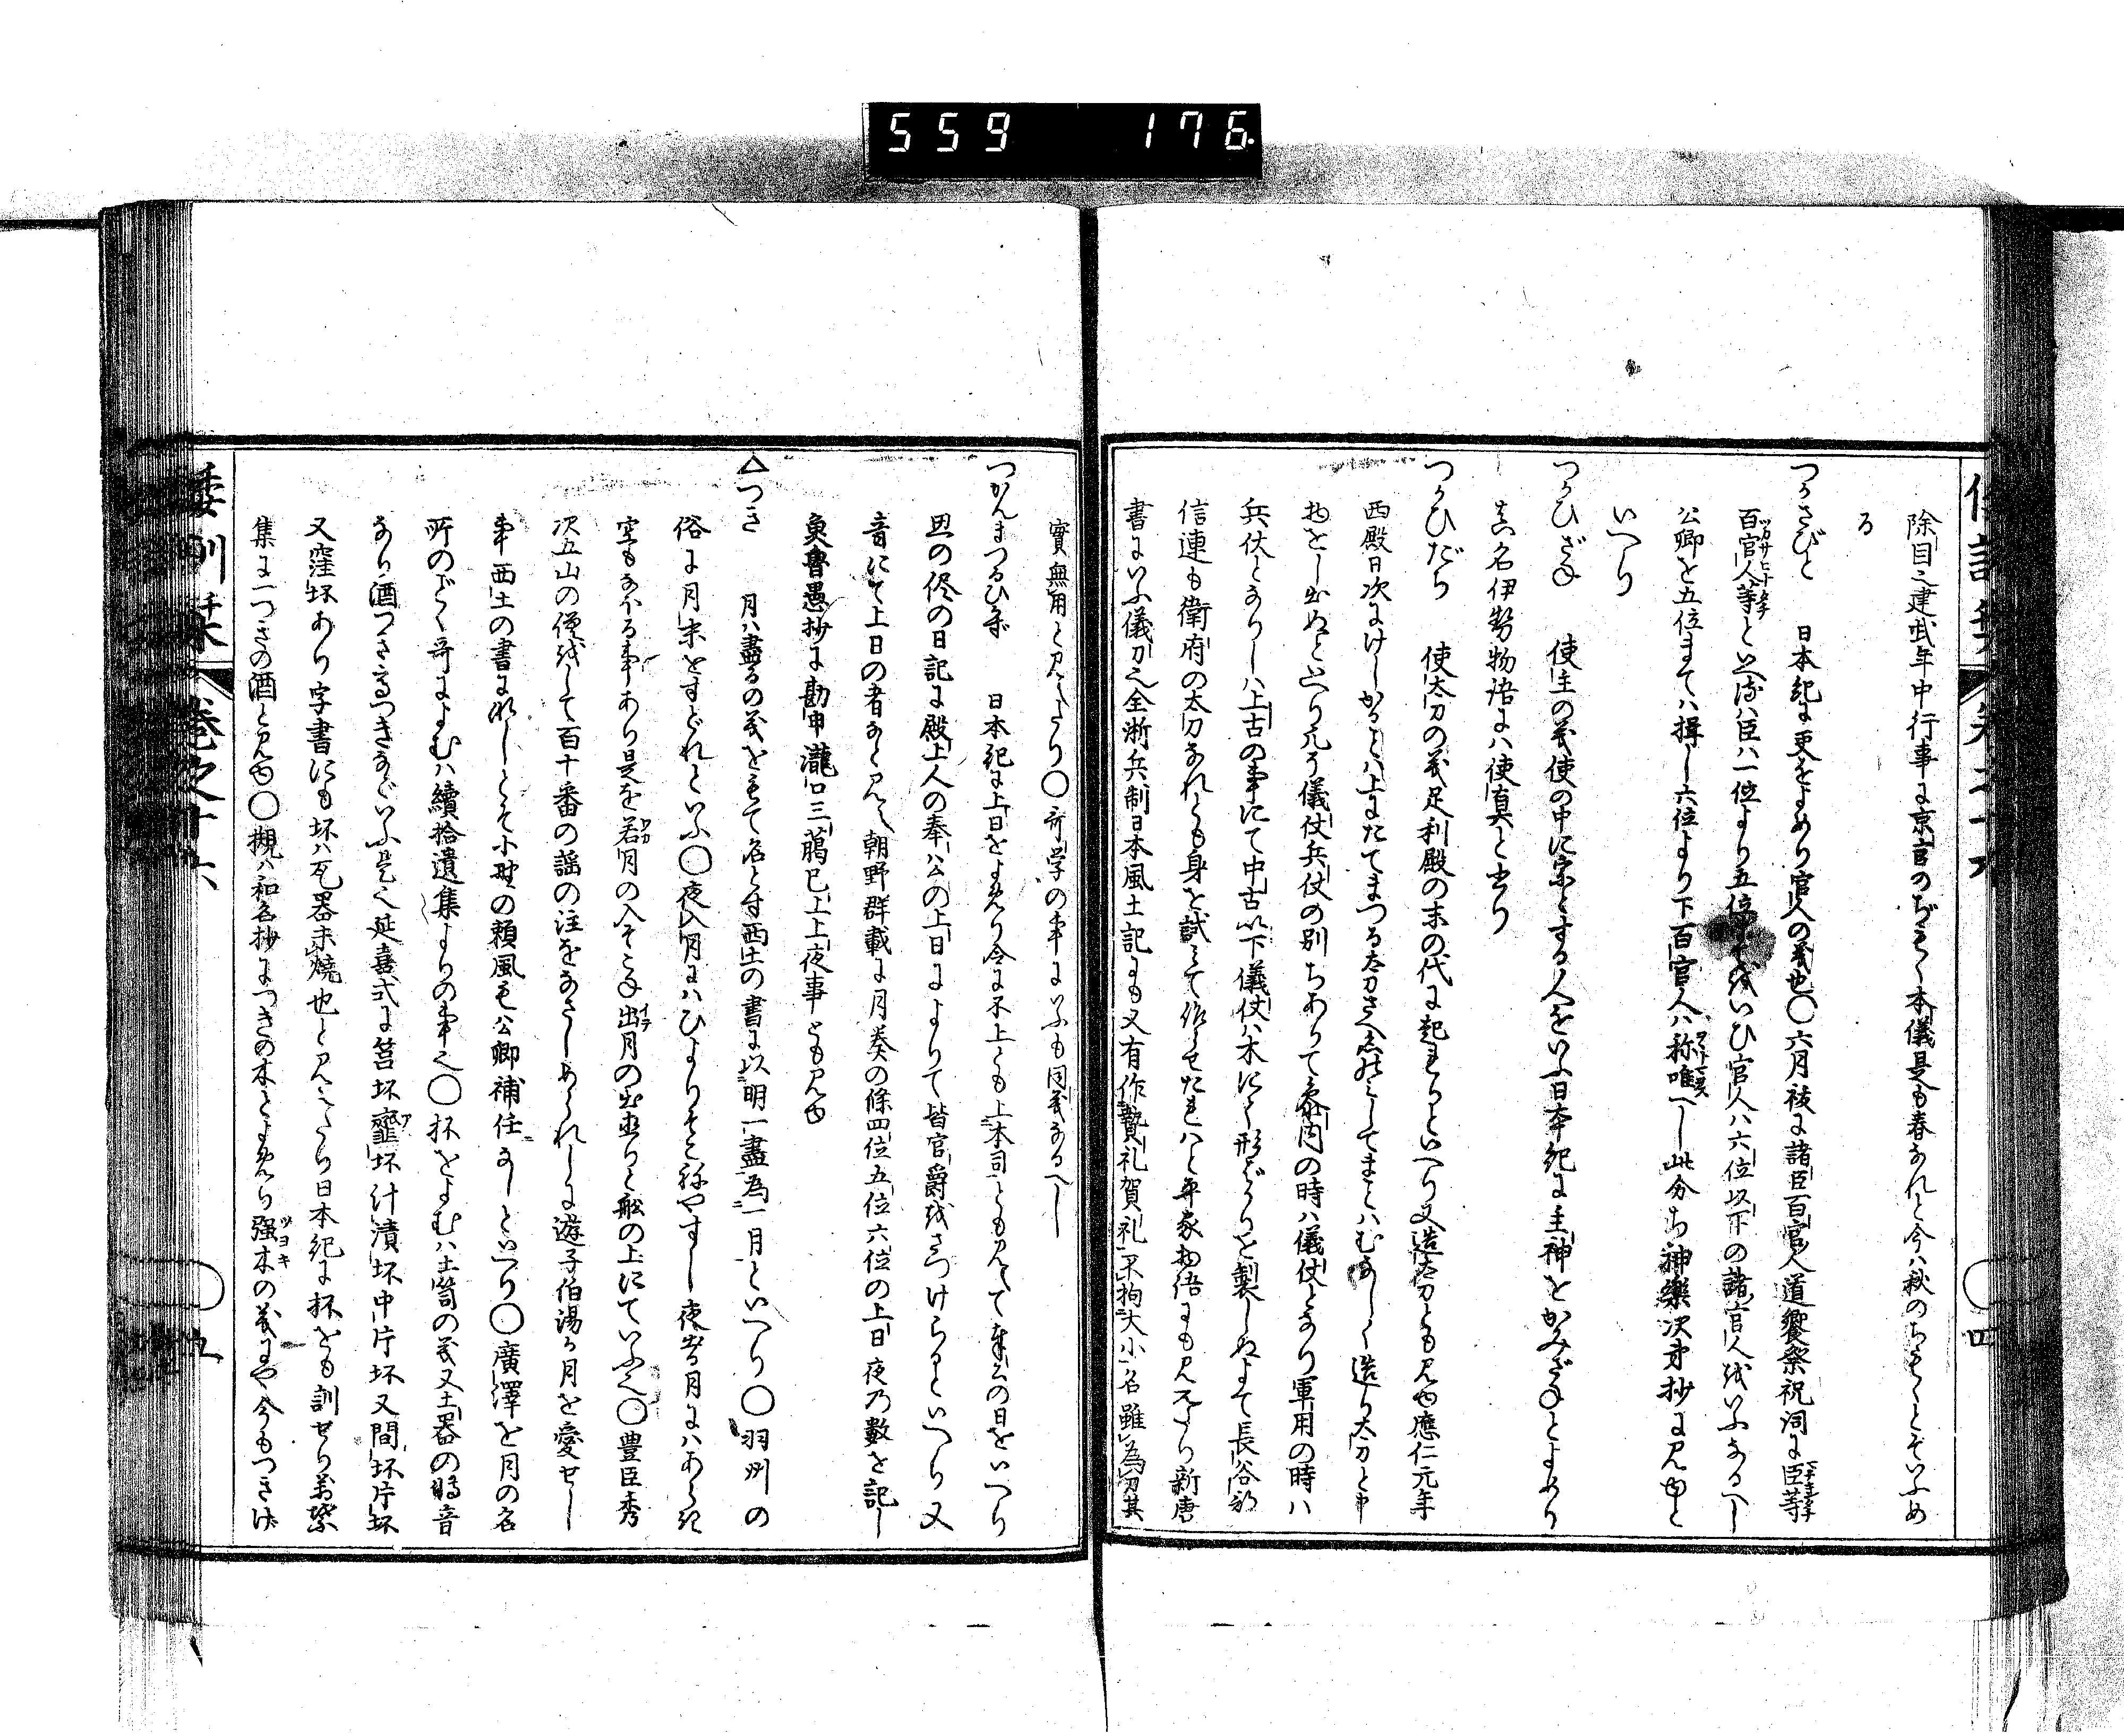 559 176
除目之建武年中行事に京官のぢもく本儀是も春なれと今ハ秋のぢもくとそいふめ
る
つかさびと 日本紀に吏をよめり官人の義也〇六月祓に諸臣百官人道饗祭祝詞に臣等
百官人等といへるハ臣ハ一位より五位までをいひ官人ハ六位以下の諸官人をいふなるへし
公卿を五位まてハ揖し六位より下百官人ハ称唯へし此分ち神樂次第抄に見ゆと
いへり
つかひざね 使主の義使の中に宗とする人をいふ日本紀に主神をかみざねとよめり
真名伊勢物語にハ使真と書り
つかひだち 使太刀の義足利殿の末の代に起るらといへり又造太刀とも見ゆ應仁元年
西殿日次にけしかることハ上にたてまつる太刀さへ
物をし出ぬといへり凡そ儀仗兵仗の別ちありて参内の時ハ儀仗となり軍用の時ハ
兵仗となりしハ上古の事にて中古以下儀仗ハ木にて形ばかりを製しぬよて長谷部
信連も衛府の太刀なれとも身を試みて作らせたれハと平家物語にも見えたり新唐
書にいふ儀刀之全浙兵制日本風土記にも又有作贄礼賀礼不拘大小名雖為刀其
實無用と見えたり〇哥学の事にいふも同義なるへし
つかんまつるひ 日本紀に上日をよめり今に不上とも上本司とも見えて奉公の日をいへり
思の侭の日記に殿上人の奉公の上日によりて皆官爵をさつけらるといへり又
音にて上日の者なと見え朝野群載に月奏の條四位五位六位の上日夜乃數を記し
魚魯愚抄に勘申瀧口三﨟巳上上夜事とも見ゆ
△つき 月ハ盡るの義をもて名と付西土の書に以明一盡為一月といへり〇羽州の
俗に月末をすどれといふ〇夜入月にハひよりそこねやすし夜出る月にハあらき
空もなほる事あり是を若月の入そこね出月の出直りと舩の上にていふ之〇豊臣秀
次五山の僧をして百十番の謡の注をなさしめられしに遊子伯陽か月を愛せし
事西土の書になしとそ小野の頼風も公卿補任なしといへり〇廣澤を月の名
所のごとく哥によむハ續拾遺集よりの事之〇杯をよむハ土笥の義又土器の略音
なり酒つき高つきなどいふ是之延喜式に筥坏韲坏汁漬坏中片坏又間坏片坏
又窪坏あり字書にも坏ハ瓦器未燒也と見えたり日本紀に杯をも訓せり万葉
集に一つきの酒と見ゆ〇槻ハ和名抄につきの木とよめり强木の義にや今もつきげ
倭訓栞 卷之十六